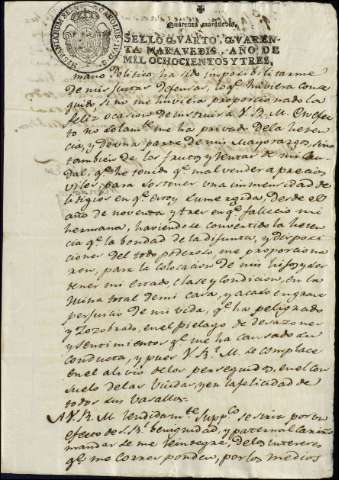 Quarenta maravedis.
SELLO QVARTO, QVAREN-
TA MARAVEDIS, AÑO DE
MIL OCHOCIENTOS Y TRES,
mano Politico, ha sido imposibilitarme
de mis justas defensas, lo q.e huviera conse-
guido si no me huviera proporcionado la
feliz ocasion de instruir a V. R. M. En efec-
to no solam.te me ha privado dela heren-
cia, y de una parte de mi Mayorazgo, sino
tambien de los frutos y rentas de mi cau-
dal, q.e he tenido q.e mal vender a precios
viles para sostener una inmensidad de
litigios en q.e estoy sumergida, desde el
año de noventa y tres en q.e fallecio mi
hermana, haviendose convertido la heren-
cia q.e la bondad de la difunta, y disposi-
ciones del todo poderoso me proporciona-
ron, para la colocacion de mis hijos, y sos-
tener mi estado clase y condicion, en la
ruina total de mi casa, y acaso en grave
perjuicio de mi vida, q.e ha peligrado
y zozobrado, en el pielago de desazones
y sentimientos q.e me ha causado su
conducta, y pues V. R.l M. se complace
en el alivio de los perseguidos, en el con-
suelo de las Viudas, y en la felicidad de
todos sus vasallos.
A V. R. M. rendidam.te Supp.co se sirva por un
efecto de S. R.l benignidad, y paternal cariño
mandar se me reintegre, de los intereses
q.e me corresponden, por los medios